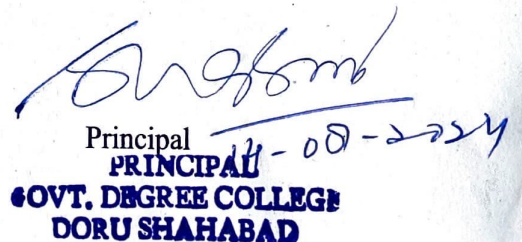 Principal
14-08-2024
PRINCIPAL
GOVT. DEGREE COLLEGE
DORU SHAHABAD